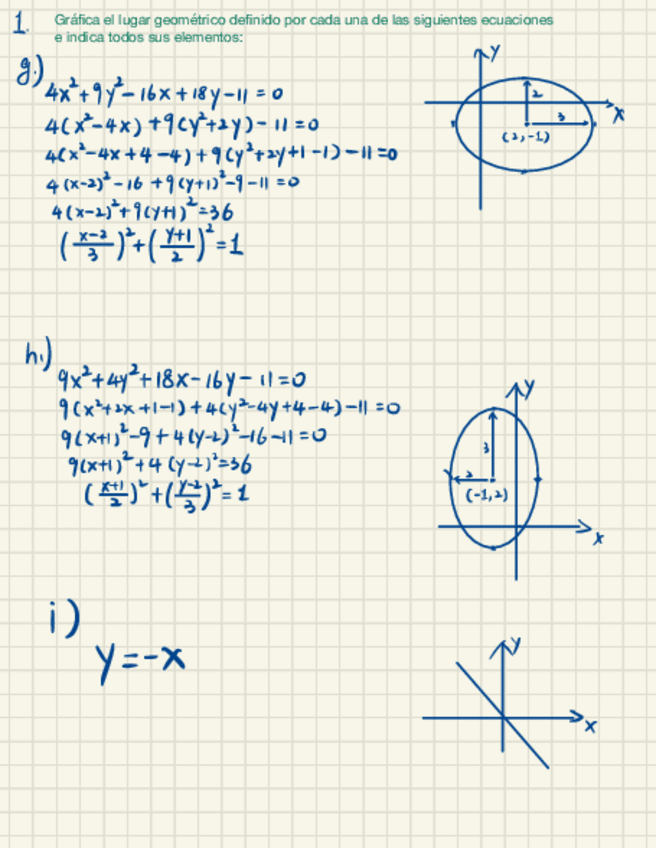 1. Gráfica el lugar geométrico definido por cada una de las siguientes ecuaciones
e indica todos sus elementos:
g.)
4x²+9y²-16x+18y-11=0
4(x²-4x)+9(y²+2y)-11=0
4(x²-4x+4-4)+9(y²+2y+1-1)-11=0
4(x-2)²-16+9(y+1)²-9-11=0
4(x-2)²+9(y+1)²=36
((x-2)/3)²+((y+1)/2)²=1
y
2
3
x
(2,-1)
h.)
9x²+4y²+18x-16y-11=0
9(x²+2x+1-1)+4(y²-4y+4-4)-11=0
9(x+1)²-9+4(y-2)²-16-11=0
9(x+1)²+4(y-2)²=36
((x+1)/2)²+((y-2)/3)²=1
y
3
2
(-1,2)
x
i)
y=-x
y
x